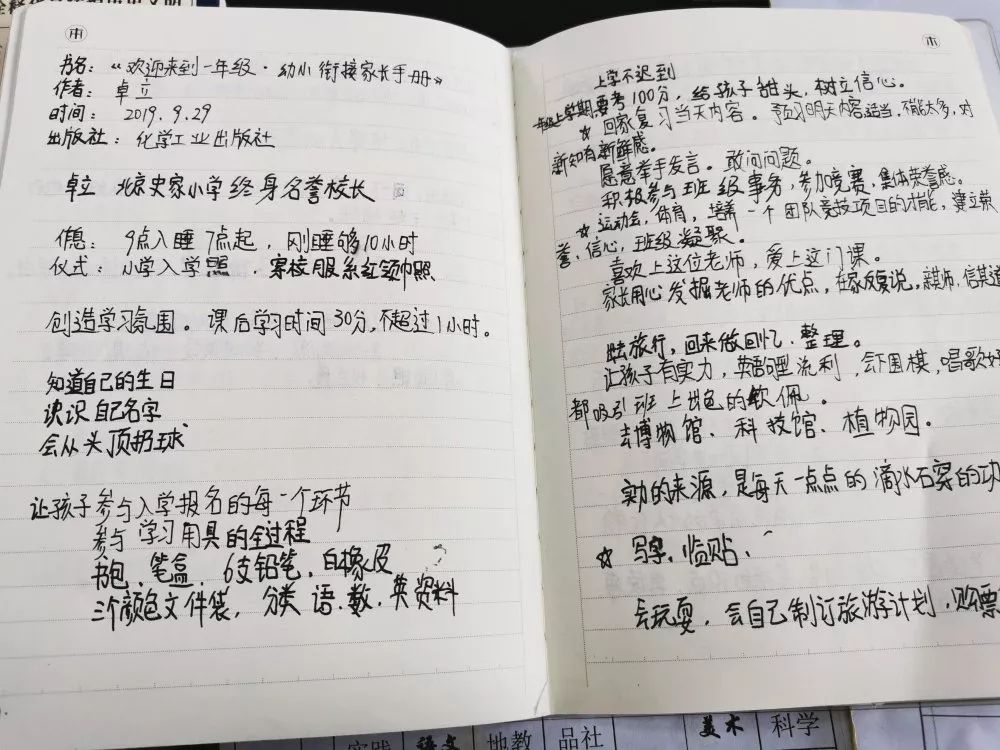 书名：《欢迎来到一年级·幼小衔接家长手册》
作者：卓立
时间：2019.9.29
出版社：化学工业出版社
卓立 北京史家小学终身名誉校长
作息：9点入睡 7点起，刚睡够10小时
仪式：小学入学照，穿校服系红领巾照
创造学习氛围。课后学习时间30分，不超过1小时。
知道自己的生日
认识自己名字
会从头顶扔球
让孩子参与入学报名的每一个环节
参与学习用具的全过程
书包、笔盒，6支铅笔，白橡皮
三个颜色文件袋，分类语.数.英资料
上学不迟到
一年级上学期，要考100分，给孩子甜头，树立信心。
☆ 回家复习当天内容。预习明天内容适当，不能太多，对
新知有新鲜感。
愿意举手发言。敢问问题。
积极参与班级事务，参加竞赛，集体荣誉感。
☆ 运动会，体育，培养一个团队竞技项目的才能，建立荣
誉、信心，班级凝聚。
喜欢上这位老师，爱上这门课。
家长用心发掘老师的优点，在家反复说，亲其师，信其道
去旅行，回来做回忆.整理。
让孩子有实力，英语流利，会下围棋，唱歌好
都吸引班上出色的钦佩。
去博物馆、科技馆、植物园。
实力的来源，是每天一点点的滴水石穿的功
☆ 写字.临贴、
去玩耍，会自己制订旅游计划.购票
实践 语文 地教 品社 美术 科学